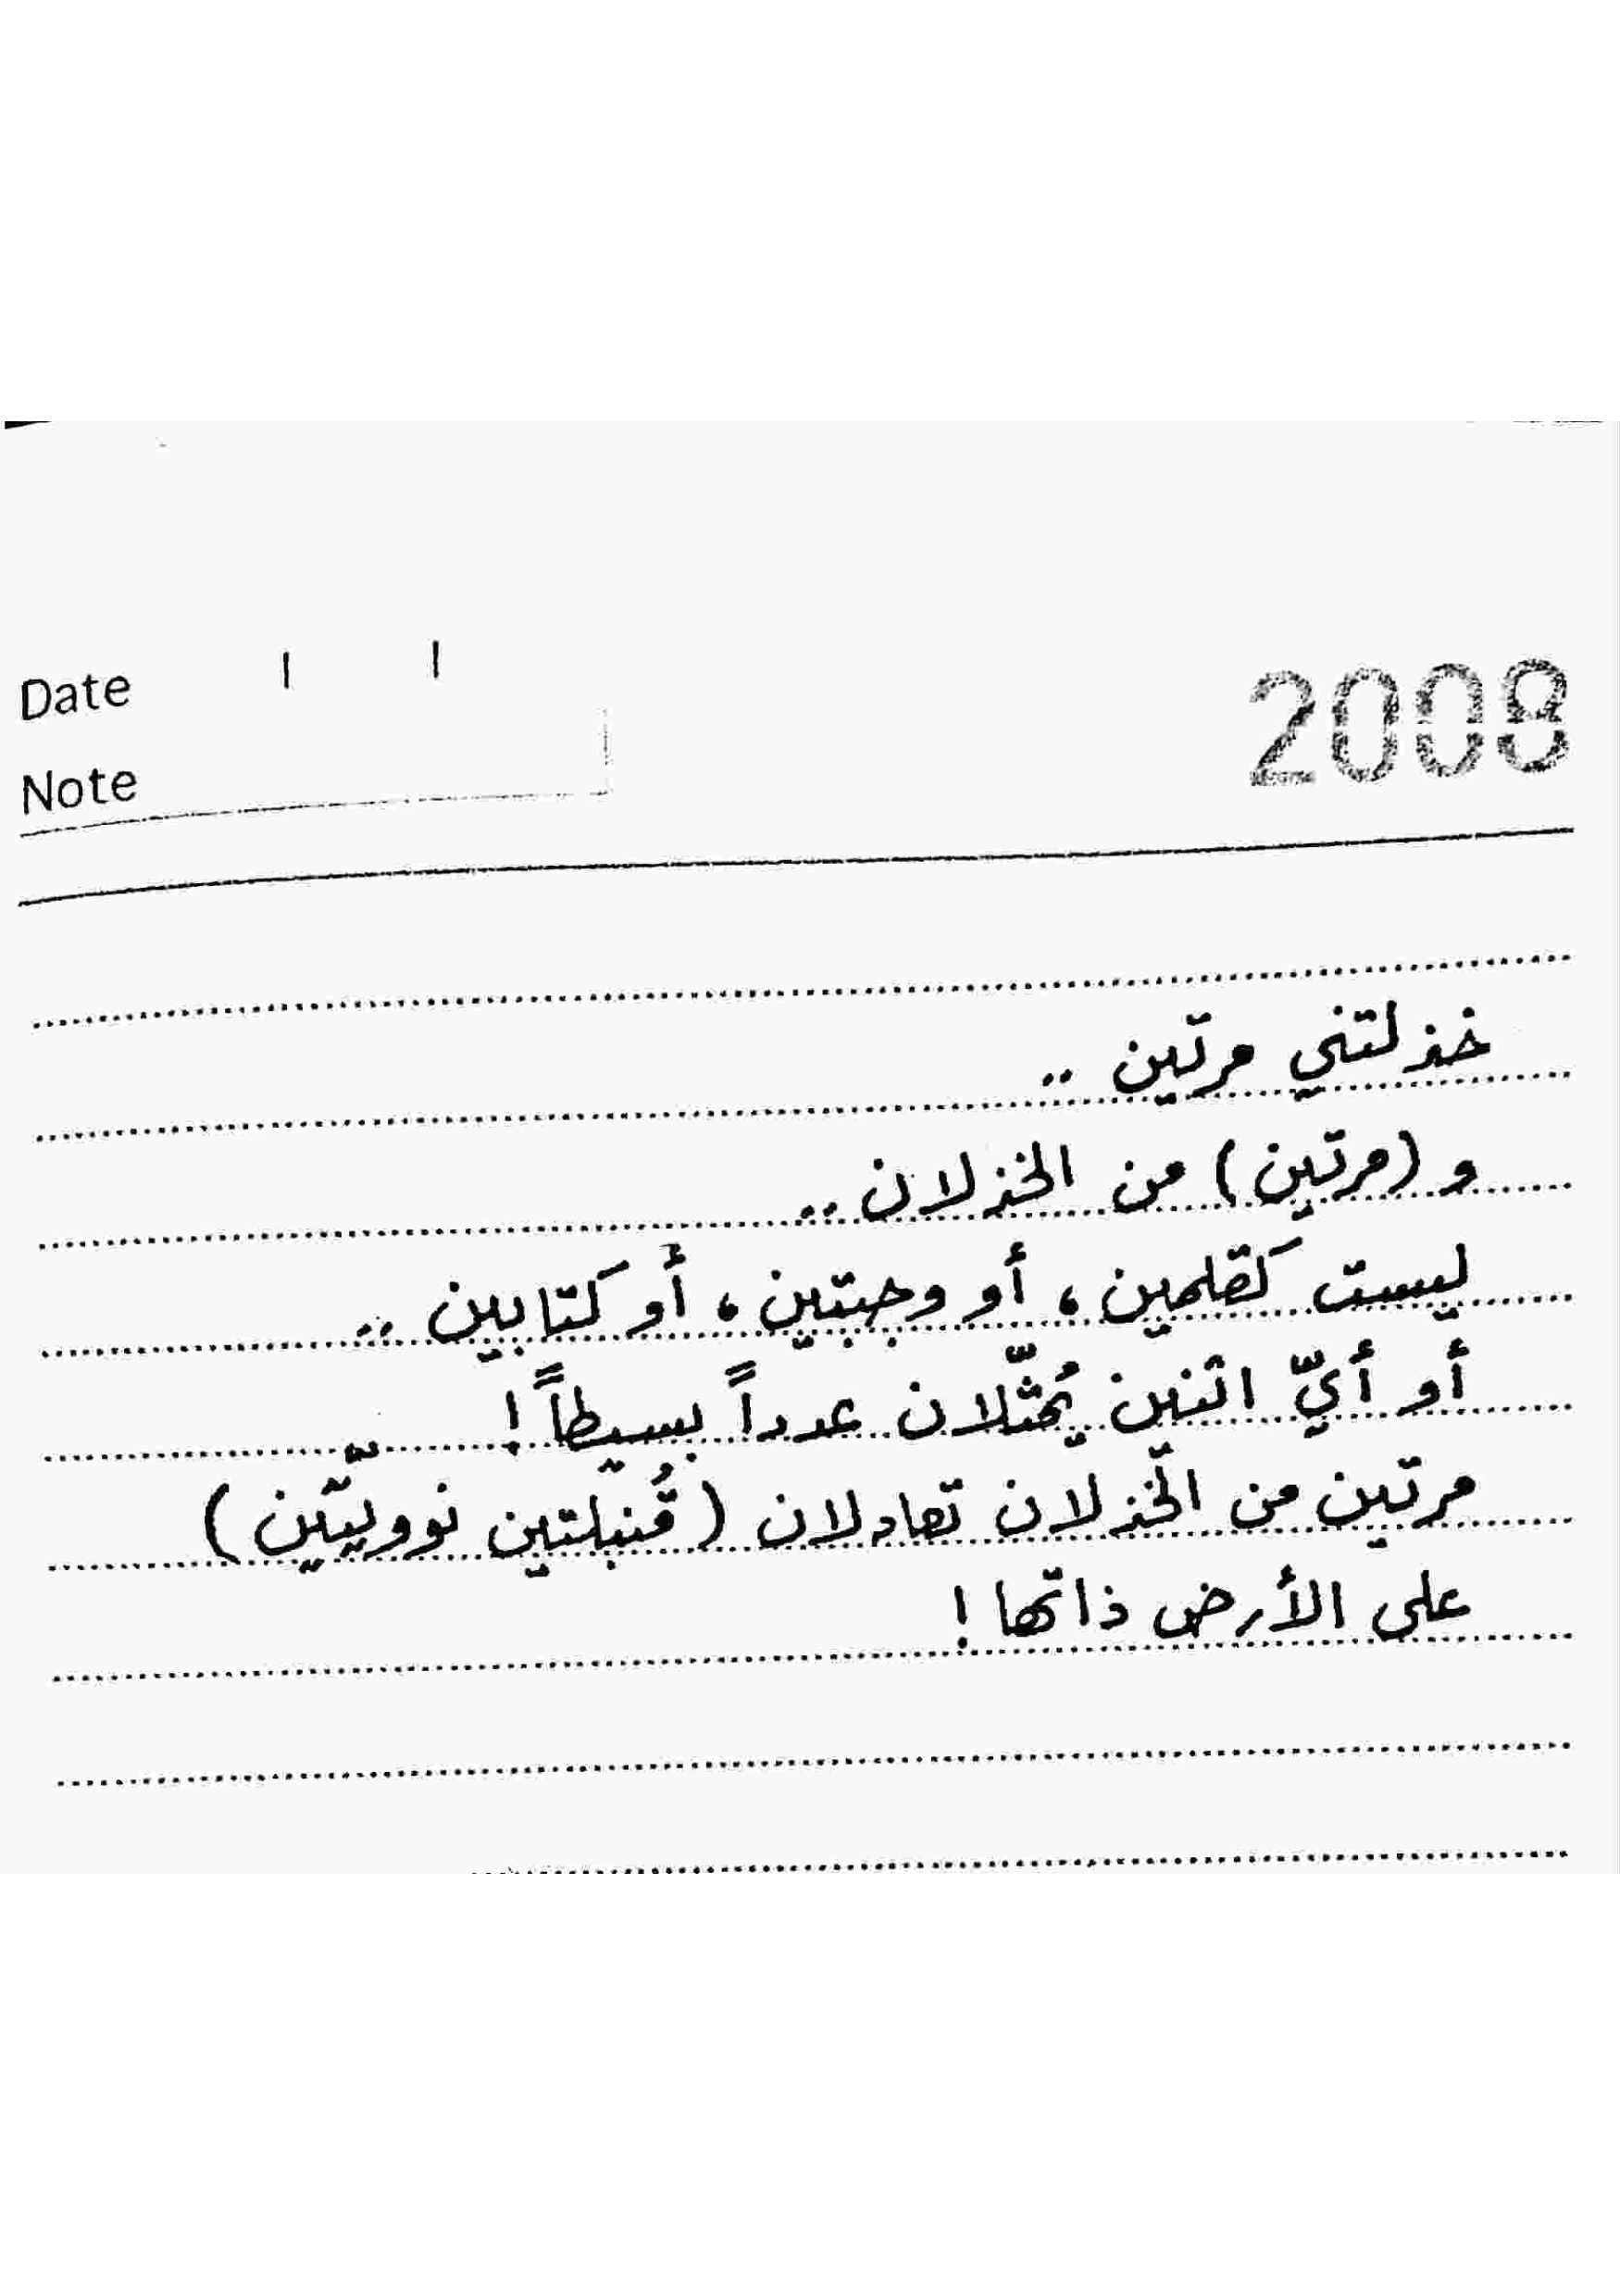 Date / /
2008
Note
خذلتني مرتين ..
و (مرتين) من الخذلان ..
ليست كقلمين ، أو وجبتين ، أو كتابين ..
أو أيّ اثنين يُمثّلان عدداً بسيطاً !
مرتين من الخذلان تعادلان (قُنبلتين نوويّتين)
على الأرض ذاتها !